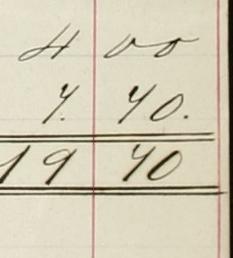 4 00
7. 70.
19 70